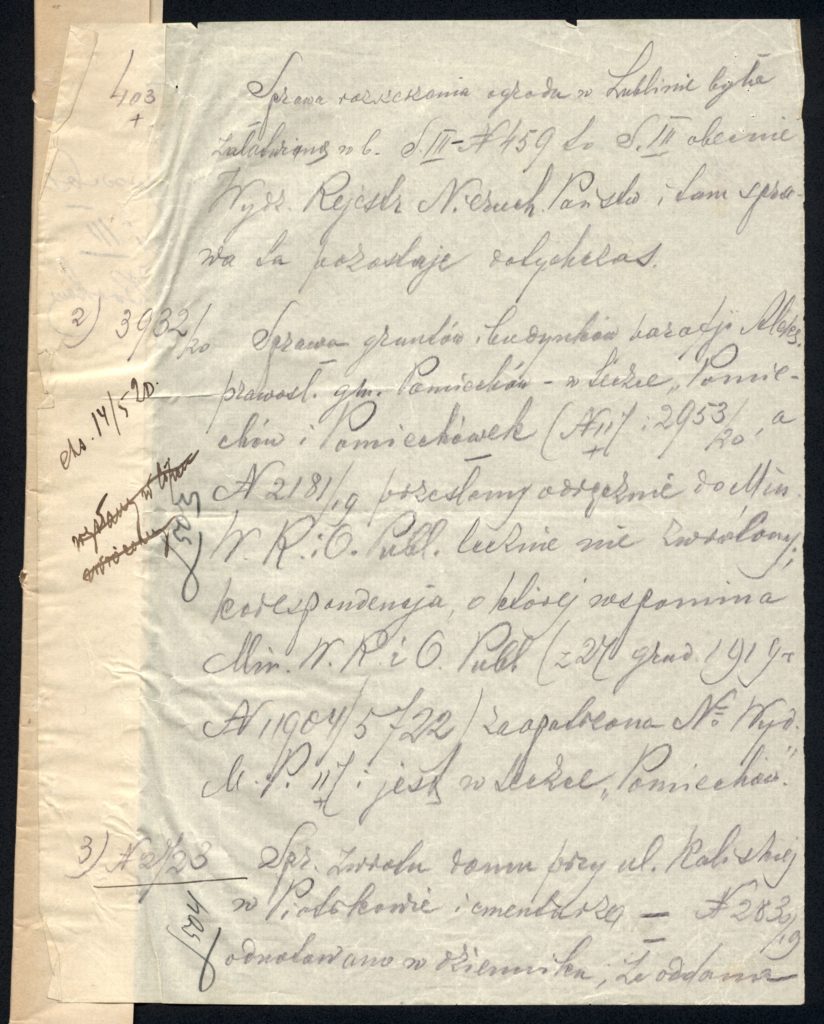 403
+
Sprawa roszczenia ogrodu w Lublinie była
załatwiona w b. S.III – N 459 to S.III obecnie
Wydz. Rejestr Nieruch. Państw i tam spra-
wa ta pozostaje dotychczas.
2) 3932/20 Sprawa gruntów i budynków parafji Aleks.
prawosł. gm. Pomiechów – w teczce „Pomie-
chów i Pomiechówek (N II/+ i 2953/20, a
N 2181/19 przesłany odręcznie do Min.
W. R. i O. Publ. licznie nie zwrócony;
korespondencja, o której wspomina
Min. W. R. i O. Publ. (z 27 grud. 1919 r
N 11904/5722) zaopatrzona № Wyd.
M. P. II/+ i jest w teczce „Pomiechów".
14/5 20.
w
3) N 2723 Spr. zwrotu domu przy ul. Kaliskiej
w Piotrkowie i cmentarza – N 283/19
odnotowano w dzienniku, że oddana